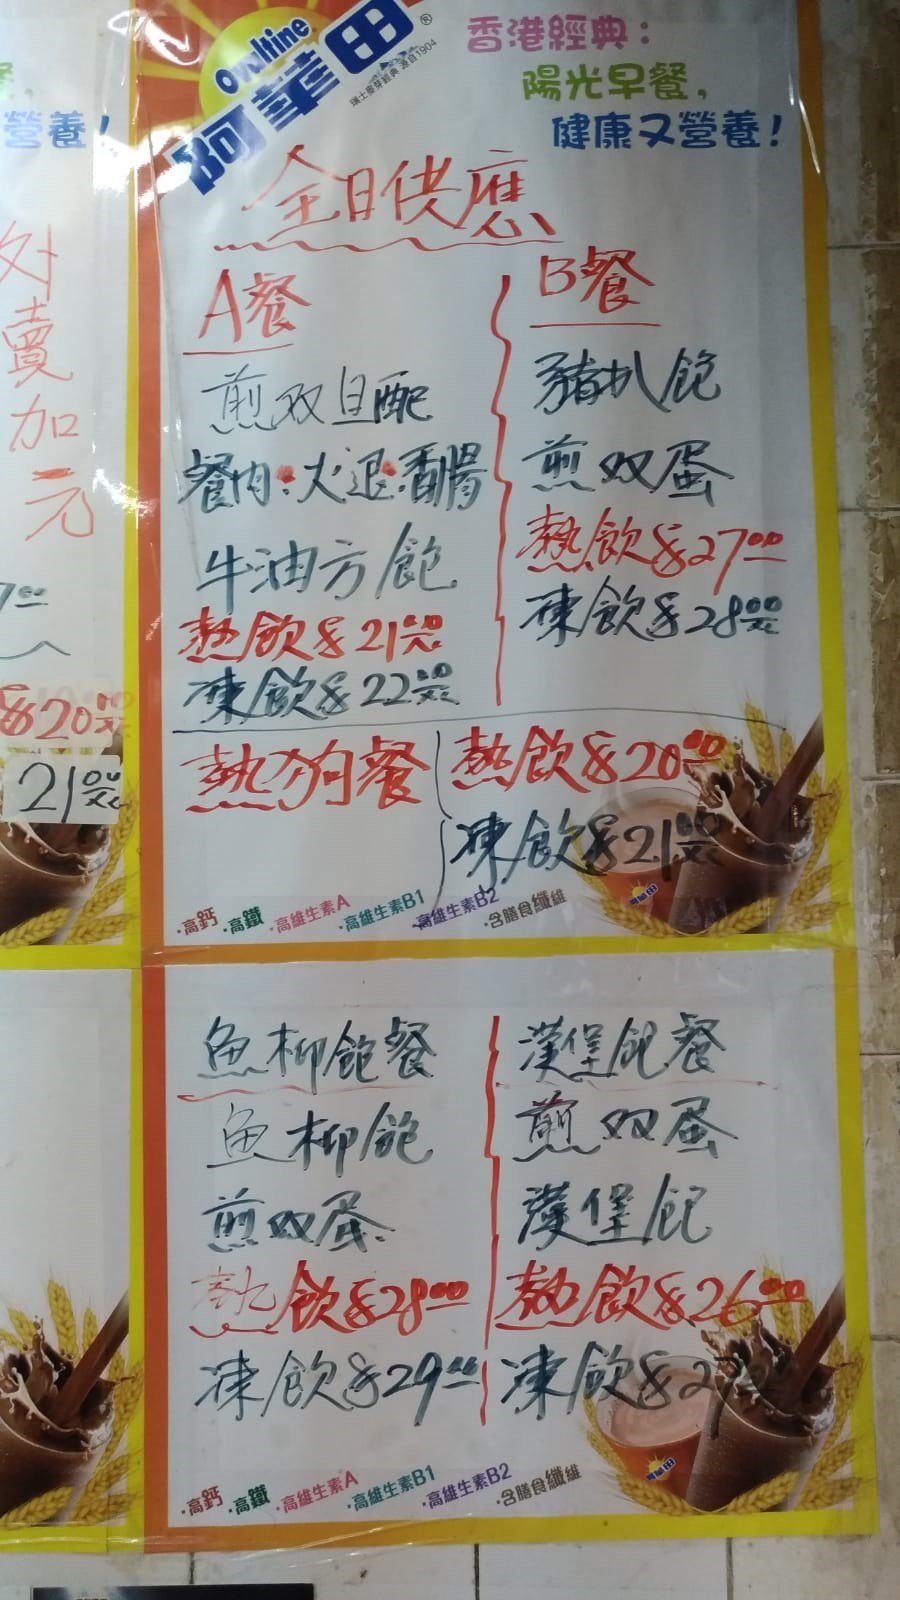 餐,
營養!
外
賣
加
元
7.00
$20.00元
21.00元
Ovaltine
阿華田®
瑞士麥芽經典 源自1904
香港經典:
陽光早餐,
健康又營養!
全日供應
A餐
煎双旦配
餐肉.火退.香腸
牛油方飽
熱飲$21.00元
凍飲$22.00元
B餐
豬扒飽
煎双蛋
熱飲$27.00
凍飲$28.00元
熱狗餐
熱飲$20.00
凍飲$21.00元
·高鈣 ·高鐵 ·高維生素A ·高維生素B1 ·高維生素B2 ·含膳食纖維
阿華田
魚柳飽餐
魚柳飽
煎双蛋.
熱飲$28.00
凍飲$29.00
漢堡飽餐
煎双蛋
漢堡飽
熱飲$26.00
凍飲$27.00
·高鈣 ·高鐵 ·高維生素A ·高維生素B1 ·高維生素B2 ·含膳食纖維
阿華田